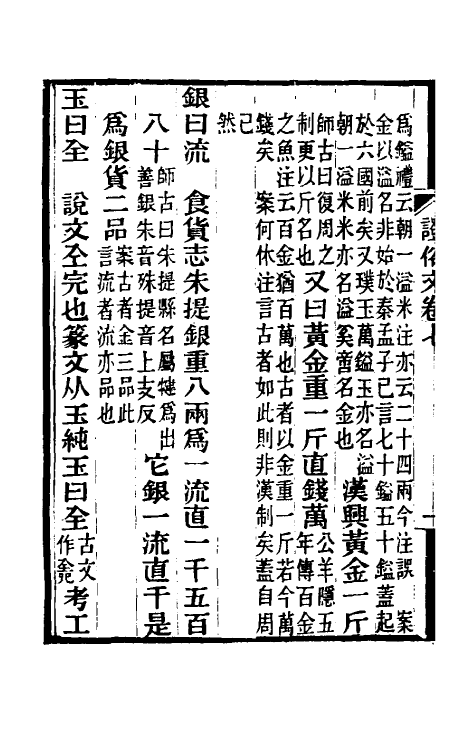 證俗文卷七 一
為鎰禮云朝一溢米注亦云二十四兩今注誤 案
金以溢名非始於秦孟子已言七十鎰五十鎰蓋起
於六國前矣又璞玉萬鎰玉亦名溢
朝一溢米米亦名溢奚啻名金也
漢興黃金一斤
師古曰復周之
制更以斤名也
又曰黃金重一斤直錢萬
公羊隱五
年傳百金
之魚注云百金猶百萬也古者以金重一斤若今萬
錢矣 案何休注言古者如此則非漢制矣蓋自周
已
然
銀曰流 食貨志朱提銀重八兩為一流直一千五百
八十
師古曰朱提縣名屬犍為出
善銀朱音殊提音上支反
它銀一流直千是
為銀貨二品
案古者金三品此
言流者流亦品也
玉曰全 說文仝完也篆文从玉純玉曰全
古文
作㒰
考工